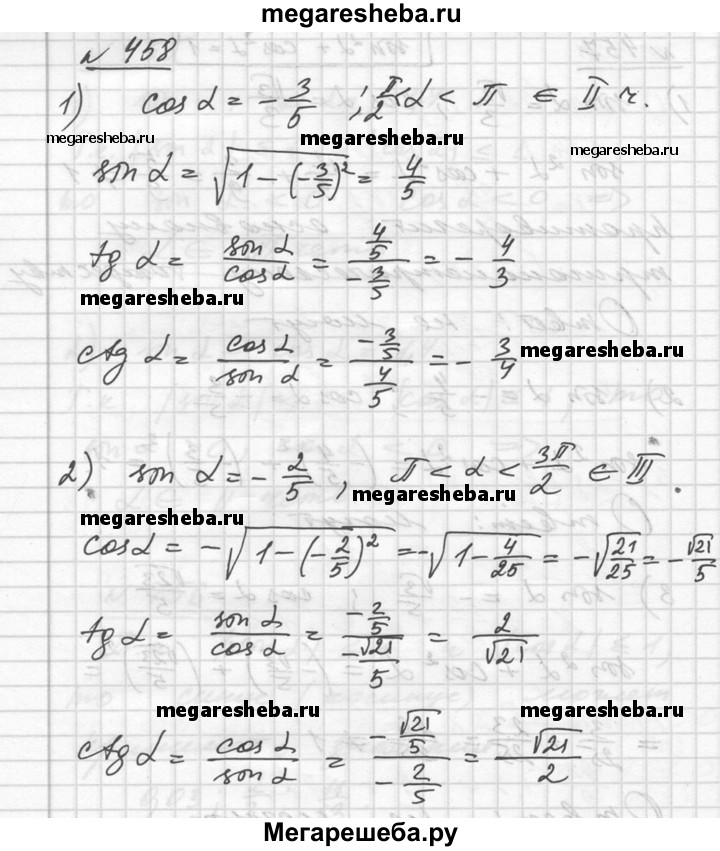 megaresheba.ru
№ 458
1) cos α = - 3/5 ; π/2 < α < π ∈ II ч.
megaresheba.ru megaresheba.ru megaresheba.ru
sin α = √(1 - (-3/5)²) = 4/5
tg α = sin α / cos α = (4/5) / (-3/5) = - 4/3
megaresheba.ru
ctg α = cos α / sin α = (-3/5) / (4/5) = - 3/4
megaresheba.ru
2) sin α = - 2/5 , π < α < 3π/2 ∈ III .
megaresheba.ru
megaresheba.ru
cos α = -√(1 - (-2/5)²) = -√(1 - 4/25) = -√(21/25) = - √21/5
tg α = sin α / cos α = (-2/5) / (-√21/5) = 2/√21
megaresheba.ru megaresheba.ru
ctg α = cos α / sin α = (-√21/5) / (-2/5) = √21/2
Мегарешеба.ру